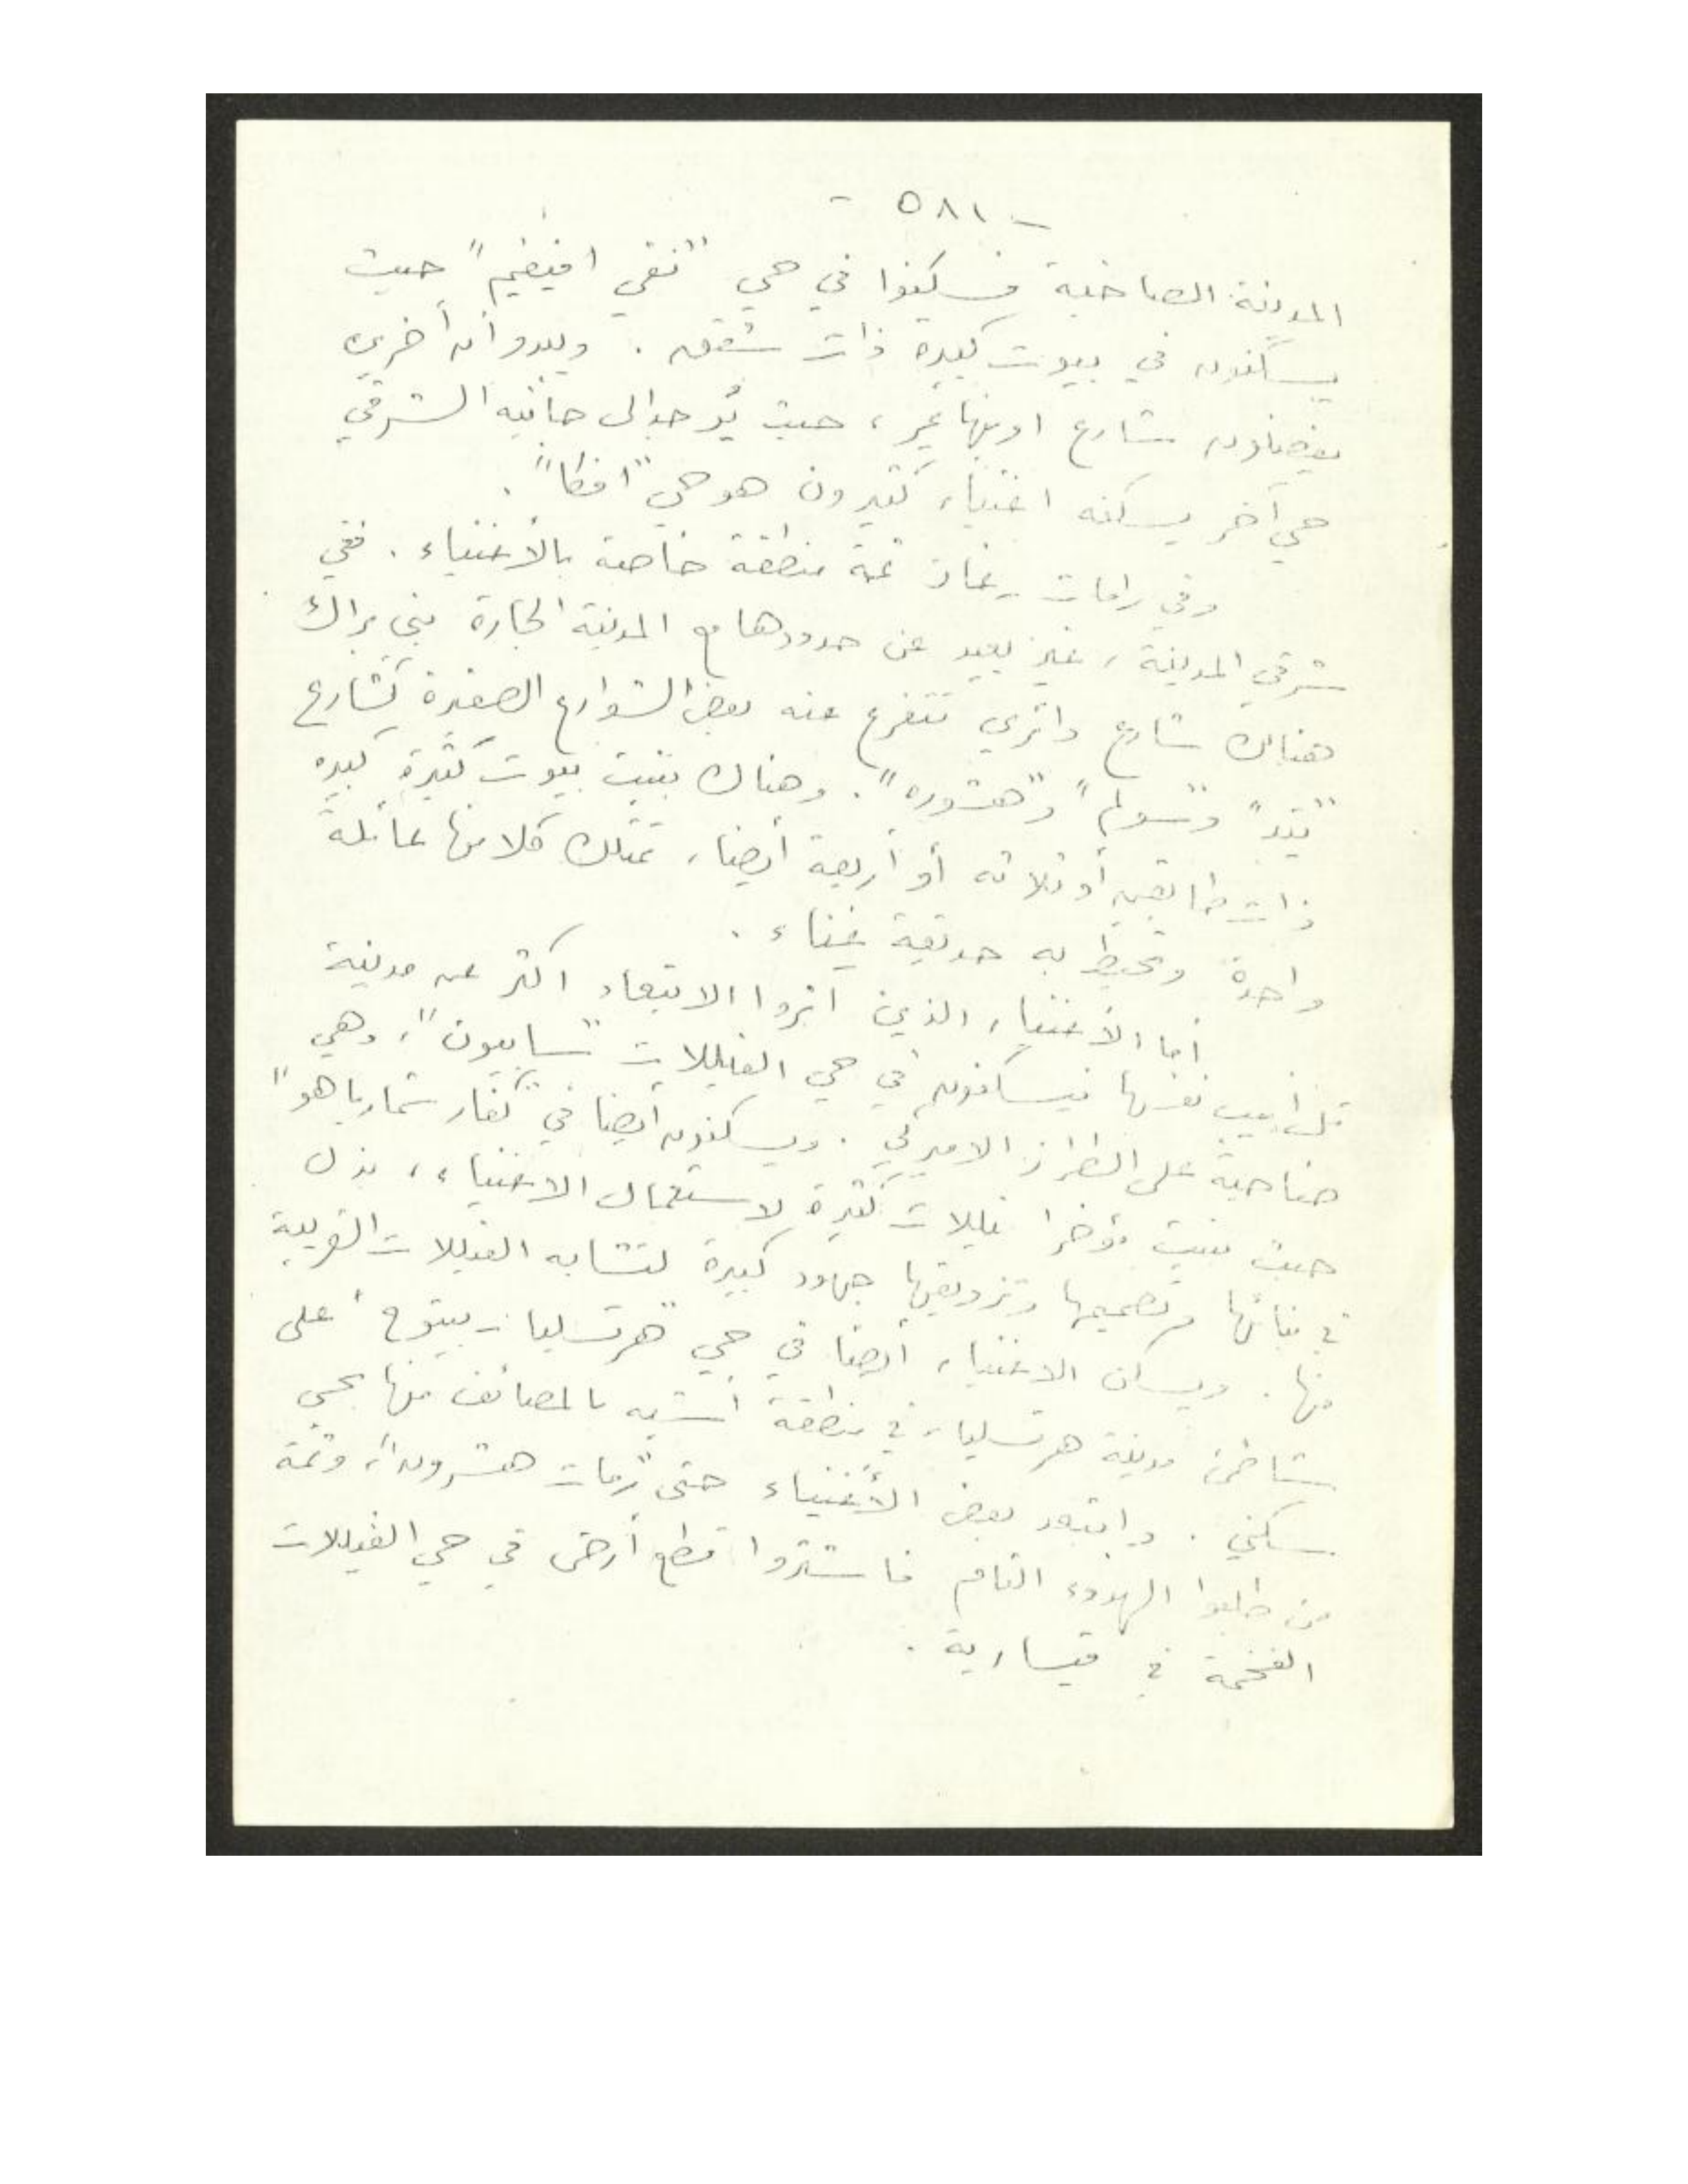 - ٥٨١ -
المدينة الصاخبة فسكنوا في حي "نفي افيفيم" حيث
يسكنون في بيوت كبيرة ذات شقق . ويبدو أن آخرين
يفضلون شارع اوبنهايمر ، حيث يُوجد الى جانبه الشرقي
حي آخر يسكنه اغنياء كثيرون هو حي "افكا" .
وفي رامات - غان ثمة منطقة خاصة بالأغنياء . ففي
شرقي المدينة ، غير بعيد عن حدودها مع المدينة الجارة بني براك
هناك شارع دائري تتفرع عنه بعض الشوارع الصغيرة كشارع
و"سولم" و"هشوره" . وهناك بنيت بيوت كثيرة كبيره
ذات طابقين أو ثلاثه أو أربعة أيضا ، تمتلك كلا منها عائلة
واحدة وتحيط به حديقة غناء .
أما الأغنياء الذين آثروا الابتعاد اكثر عن مدينة
تل أبيب نفسها فيسكنون في حي الفيللات "سابيون" ، وهي
ضاحية على الطراز الاميركي . ويسكنون أيضا في "كفار شمارياهو"
حيث بنيت مؤخرا فيللات كثيرة لاستعمال الاغنياء ، بذل
في بنائها وتصميمها وتزويقها جهود كبيرة لتشابه الفيللات القريبة
منها . ويسكن الاغنياء أيضا في حي "هرتسليا - بيتوح" على
شاطئ مدينة هرتسليا ، في منطقة أشبه بالمصائف منها بحي
سكني . وابتعد بعض الأغنياء حتى "رمات هشرون" ، وثمة
من طلبوا الهدوء التام فاشتروا قطع أرض في حي الفيللات
الفخمة في قيسارية .